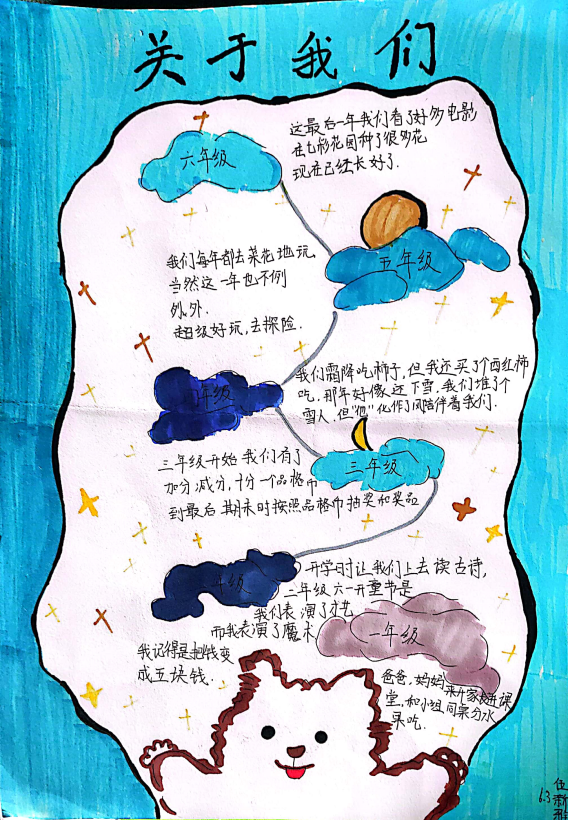 关于我们
六年级
这最后一年我们看了好多电影
在七彩花园种了很多花
现在已经长好了.
五年级
我们每年都去菜花地玩,
当然这一年也不例
外.
超级好玩,去探险.
四年级
我们霜降吃柿子,但我还买了个西红柿
吃,那年好像还下雪,我们堆了个
雪人,但"他"化作了风陪伴着我们.
三年级
三年级开始我们有了
加分,减分,十分一个品格币
到最后期末时按照品格币抽奖和奖品
二年级
开学时让我们上去读古诗,
二年级六一儿童节是
我们表演了才艺
而我表演了魔术
我记得是把钱变
成五块钱.
一年级
爸爸,妈妈来开家长进课
堂,和小组同桌分水
果吃.
6.3